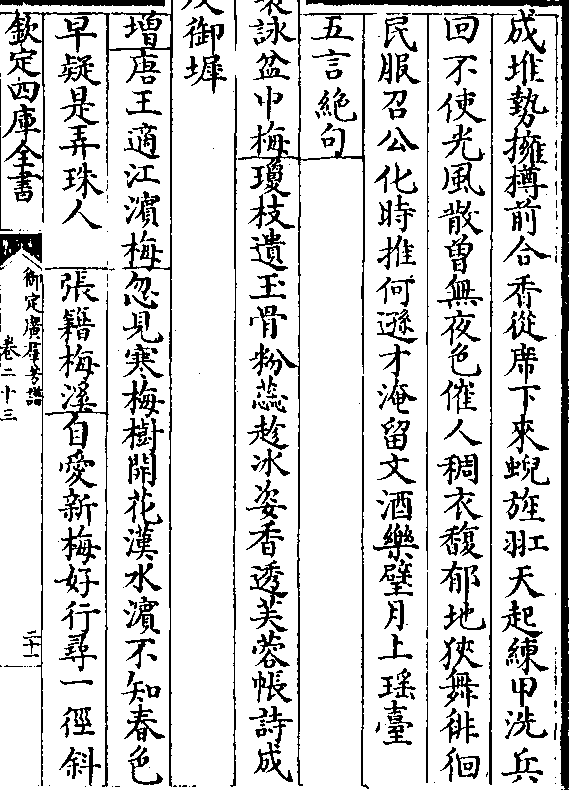 成堆勢擁樽前合香從席下來蜺旌䢼天起練甲洗兵
回不使光風散曽無夜色催人稠衣馥郁地狹舞徘徊
民服召公化時推何遜才淹留文酒樂璧月上瑶臺
五言絶句
詠盆中梅瓊枝遺玉骨粉蕊趁冰姿香透芙蓉帳詩成
御墀
增唐王適江濱梅忽見寒梅樹開花漢水濱不知春色
早疑是弄珠人 張籍梅溪自愛新梅好行尋一徑斜
欽定四庫全書
御定廣羣芳譜
卷二十三
三十一